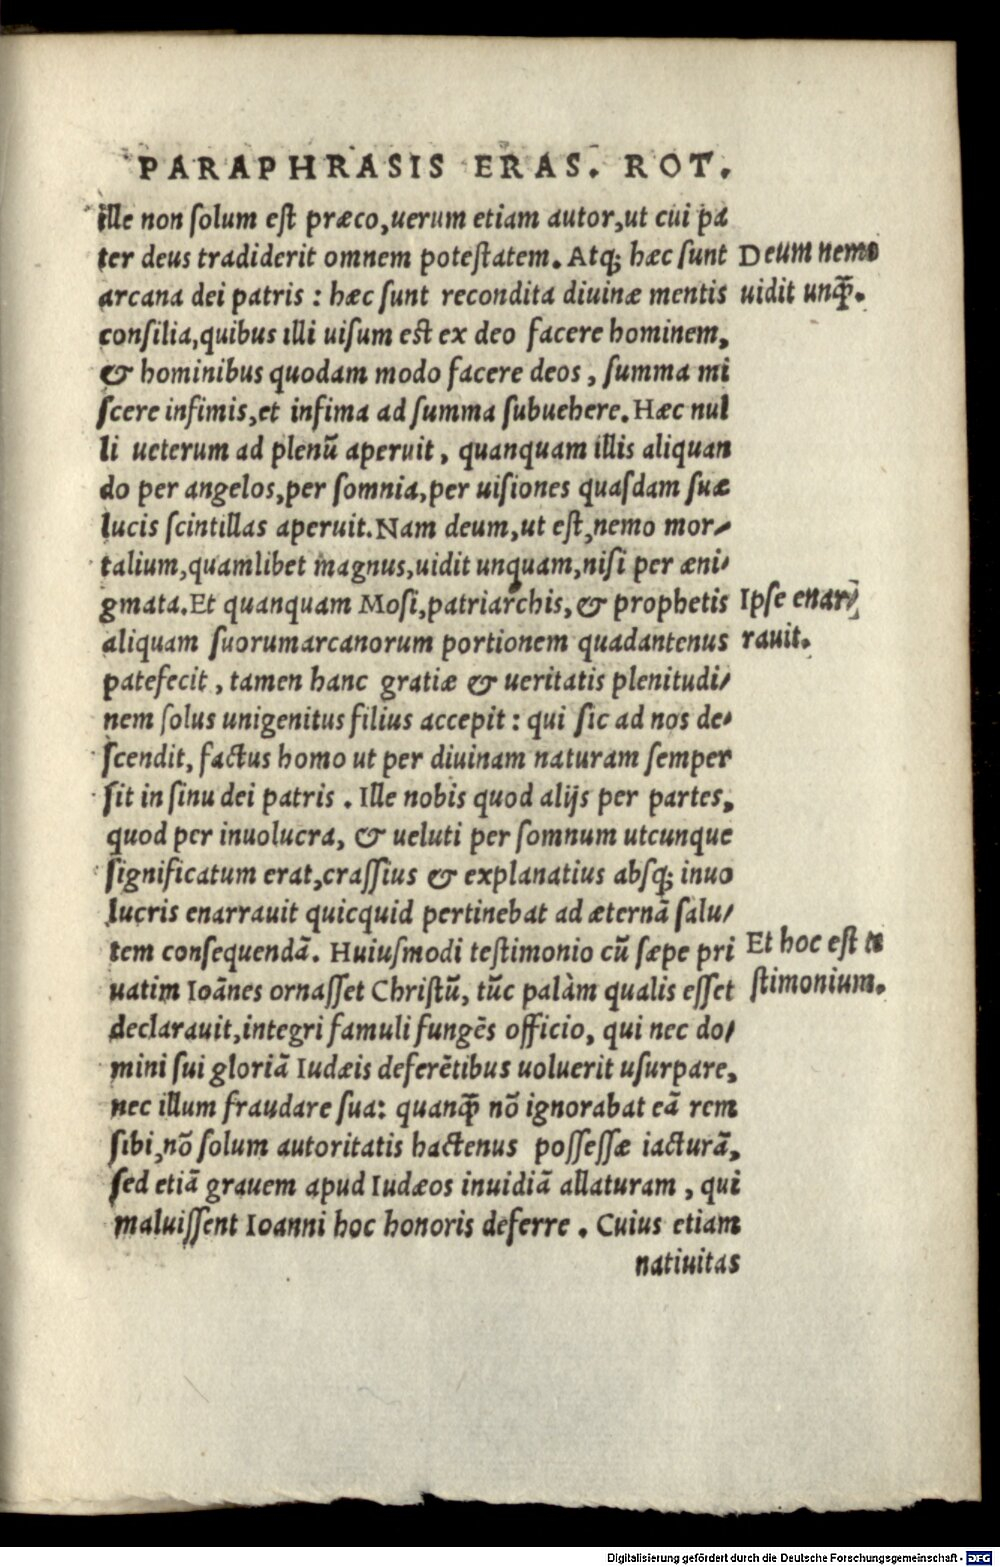 PARAPHRASIS ERAS. ROT.
ille non ſolum eſt præco,uerum etiam autor,ut cui pa
ter deus tradiderit omnem poteſtatem. Atq; hæc ſunt
Deum nemo
arcana dei patris : hæc ſunt recondita diuinæ mentis
uidit unq̄.
conſilia,quibus illi uiſum eſt ex deo facere hominem,
& hominibus quodam modo facere deos , ſumma mi
ſcere infimis,et infima ad ſumma ſubuehere. Hæc nul
li ueterum ad plenū aperuit , quanquam illis aliquan
do per angelos,per ſomnia,per uiſiones quaſdam ſuæ
lucis ſcintillas aperuit. Nam deum,ut eſt,nemo mor⸗
talium,quamlibet magnus,uidit unquam,niſi per æni⸗
gmata. Et quanquam Moſi,patriarchis, & prophetis
Ipſe enar⸗
aliquam ſuorumarcanorum portionem quadantenus
rauit.
patefecit , tamen hanc gratiæ & ueritatis plenitudi⸗
nem ſolus unigenitus filius accepit : qui ſic ad nos de⸗
ſcendit, factus homo ut per diuinam naturam ſemper
ſit in ſinu dei patris . Ille nobis quod alijs per partes,
quod per inuolucra, & ueluti per ſomnum utcunque
ſignificatum erat,craſſius & explanatius abſq; inuo
lucris enarrauit quicquid pertinebat ad æternā ſalu⸗
tem conſequendā. Huiuſmodi teſtimonio cū ſæpe pri
Et hoc eſt te
uatim Ioānes ornaſſet Chriſtū, tūc palàm qualis eſſet
ſtimonium.
declarauit,integri famuli fungēs officio, qui nec do⸗
mini ſui gloriā Iudæis deferētibus uoluerit uſurpare,
nec illum fraudare ſua: quanq̄ nō ignorabat eā rem
ſibi,nō ſolum autoritatis hactenus poſſeſſæ iacturā,
ſed etiā grauem apud Iudæos inuidiā allaturam , qui
maluiſſent Ioanni hoc honoris deferre . Cuius etiam
natiuitas
Digitalisierung gefördert durch die Deutsche Forschungsgemeinschaft - DFG